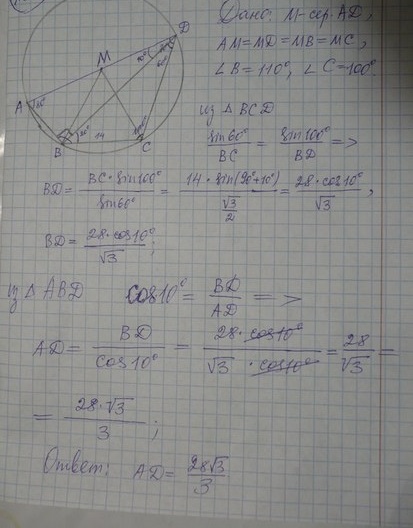 Дано: M-сер. AD,
AM=MD=MB=MC,
∠B=110°, ∠C=100°
D
M
A
B
14
C
из △BCD
sin60°/BC = sin100°/BD =>
BD = BC·sin100°/sin60° = 14·sin(90°+10°)/(√3/2) = 28·cos10°/√3,
BD = 28·cos10°/√3;
из △ABD cos10° = BD/AD =>
AD = BD/cos10° = 28·cos10°/√3·cos10° = 28/√3 =
= 28·√3/3;
Ответ: AD = 28√3/3